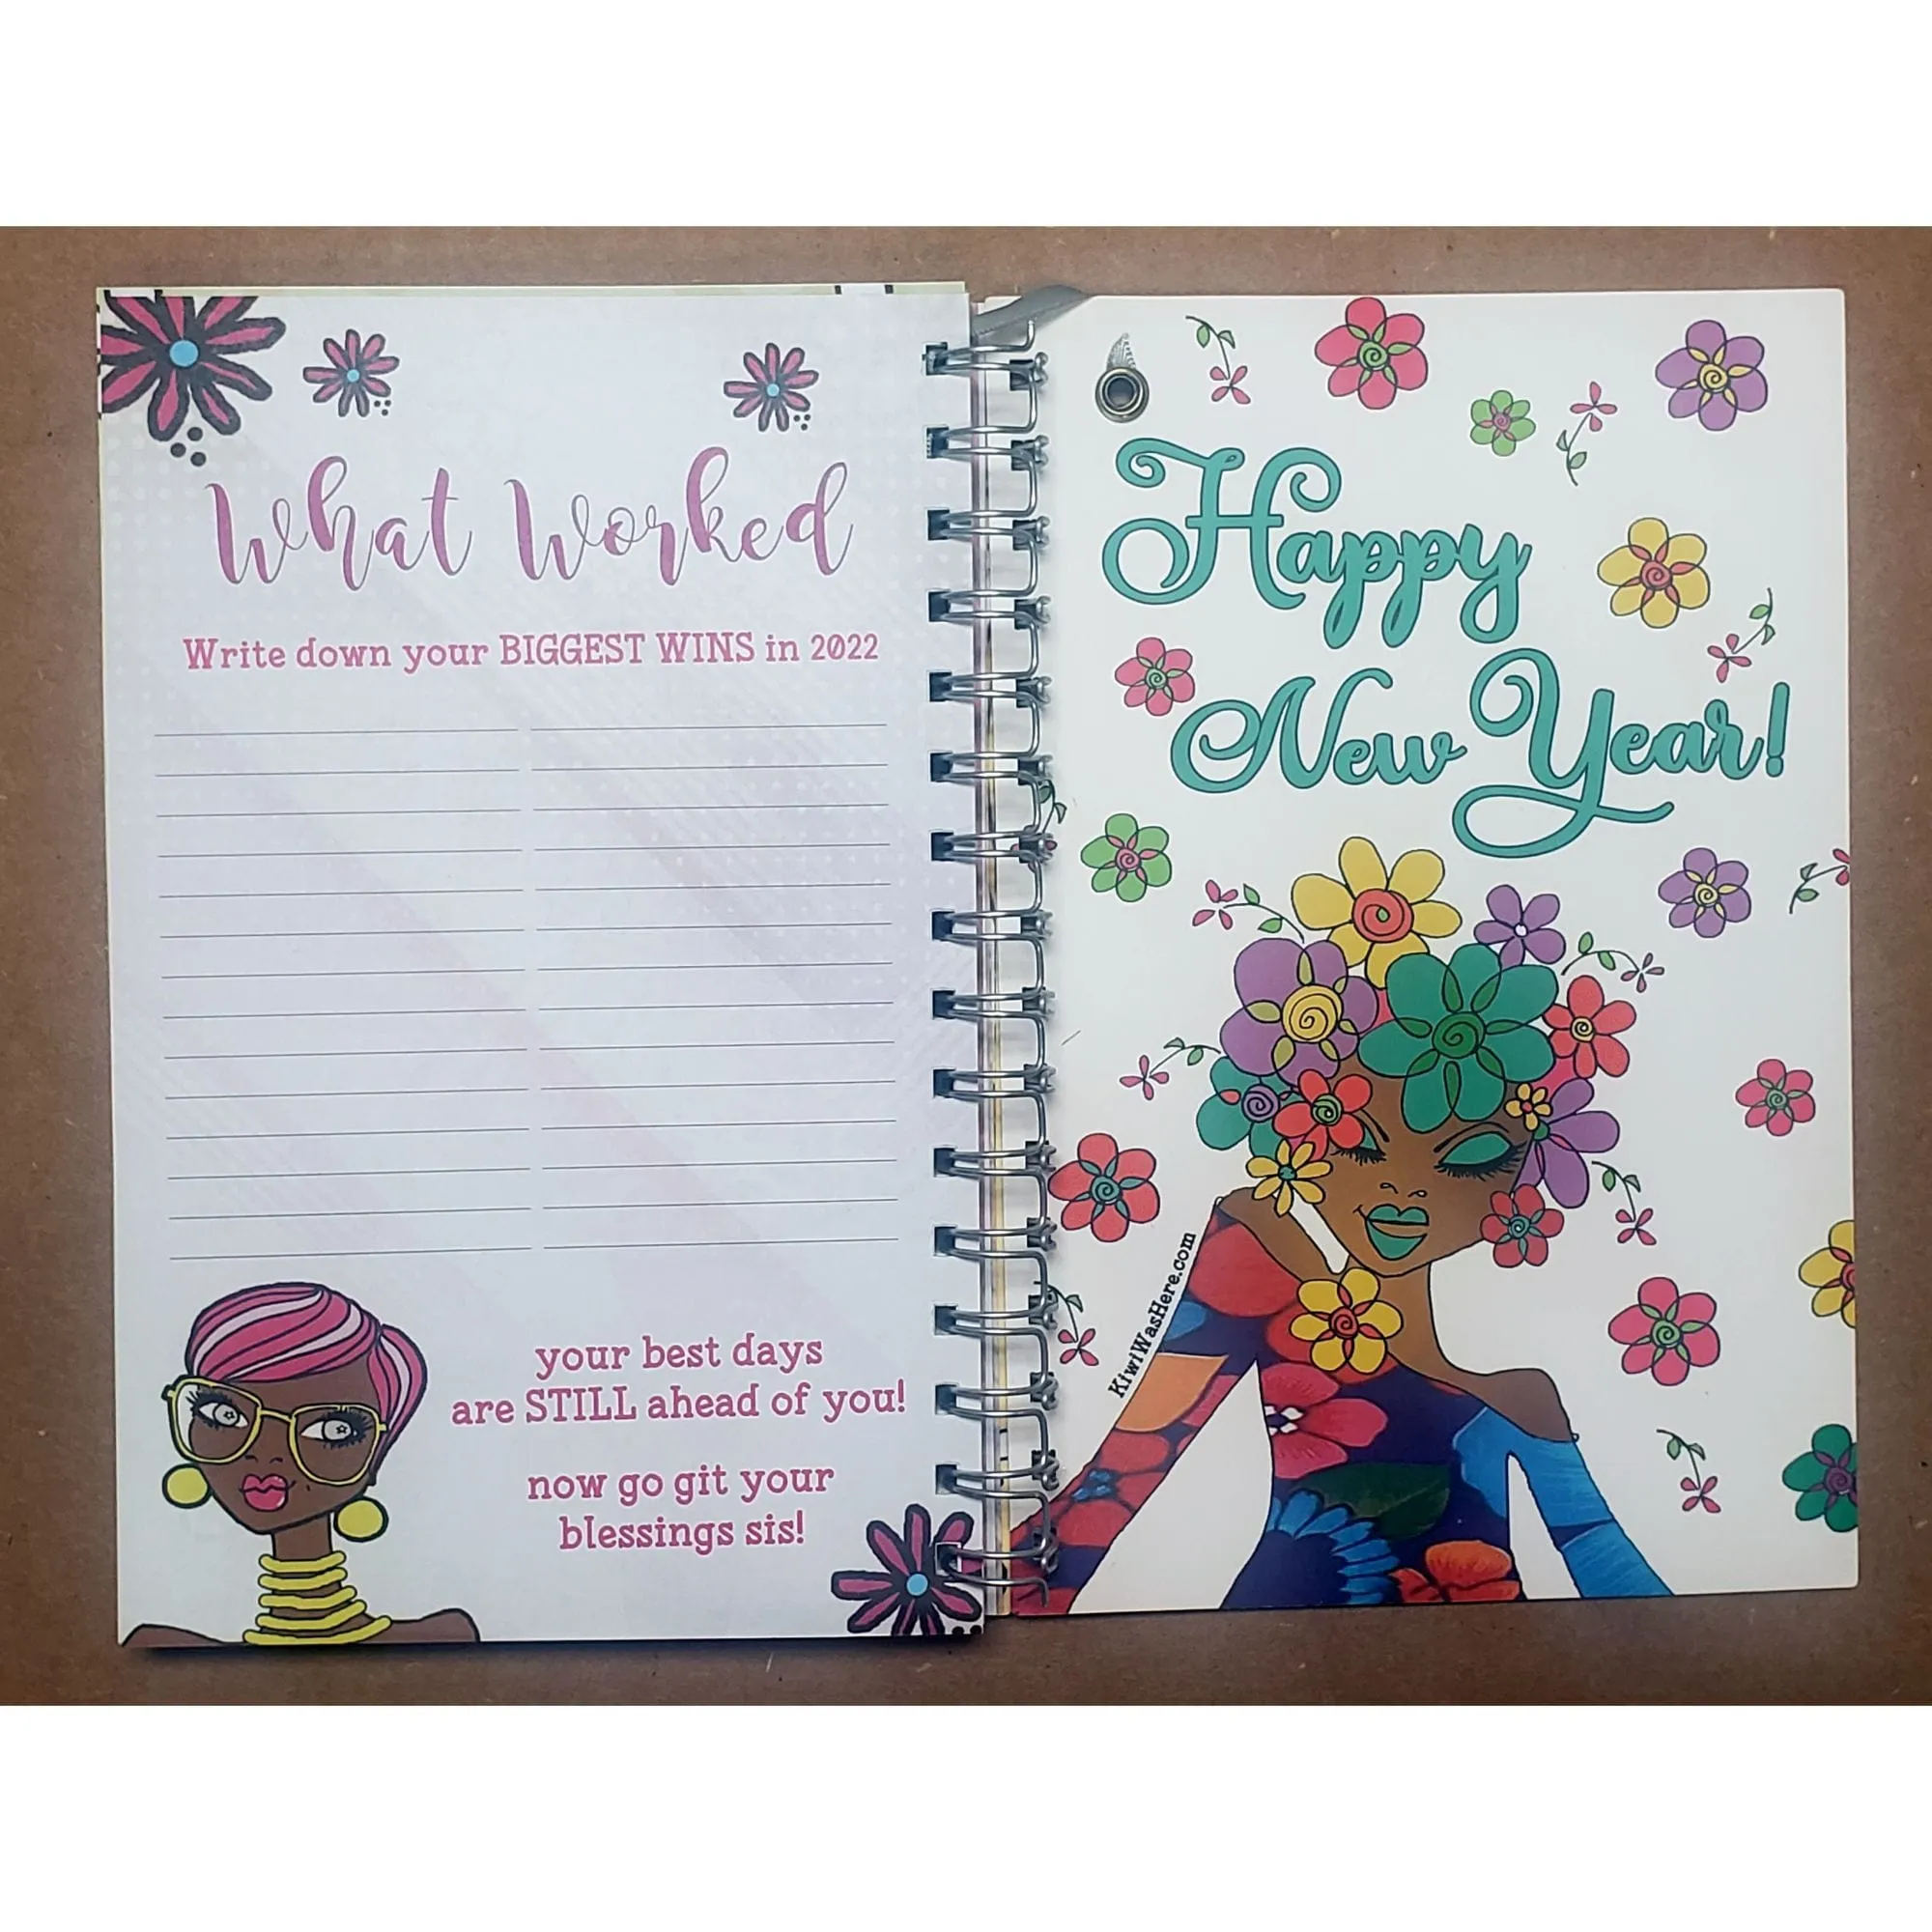 What Worked
Write down your BIGGEST WINS in 2022
your best days
are STILL ahead of you!
now go git your
blessings sis!
Happy
New Year!
KiwiWasHere.com